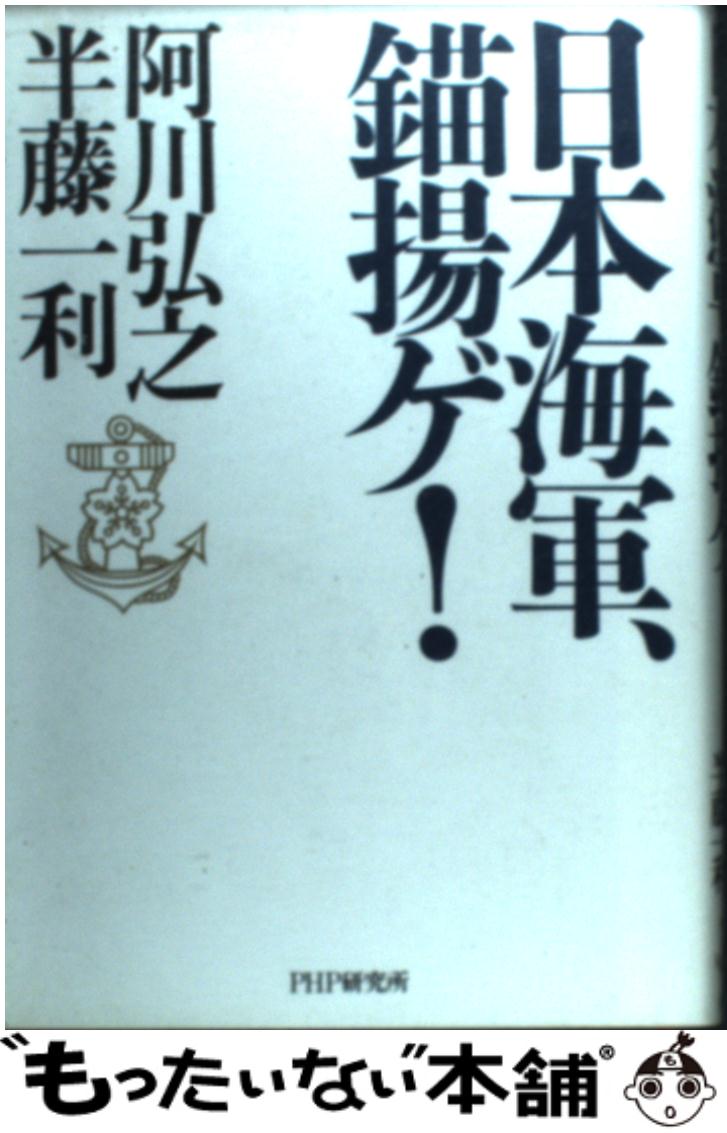 日本海軍、
錨揚ゲ！
阿川弘之
半藤一利
PHP研究所
“もったいない”本舗®
も